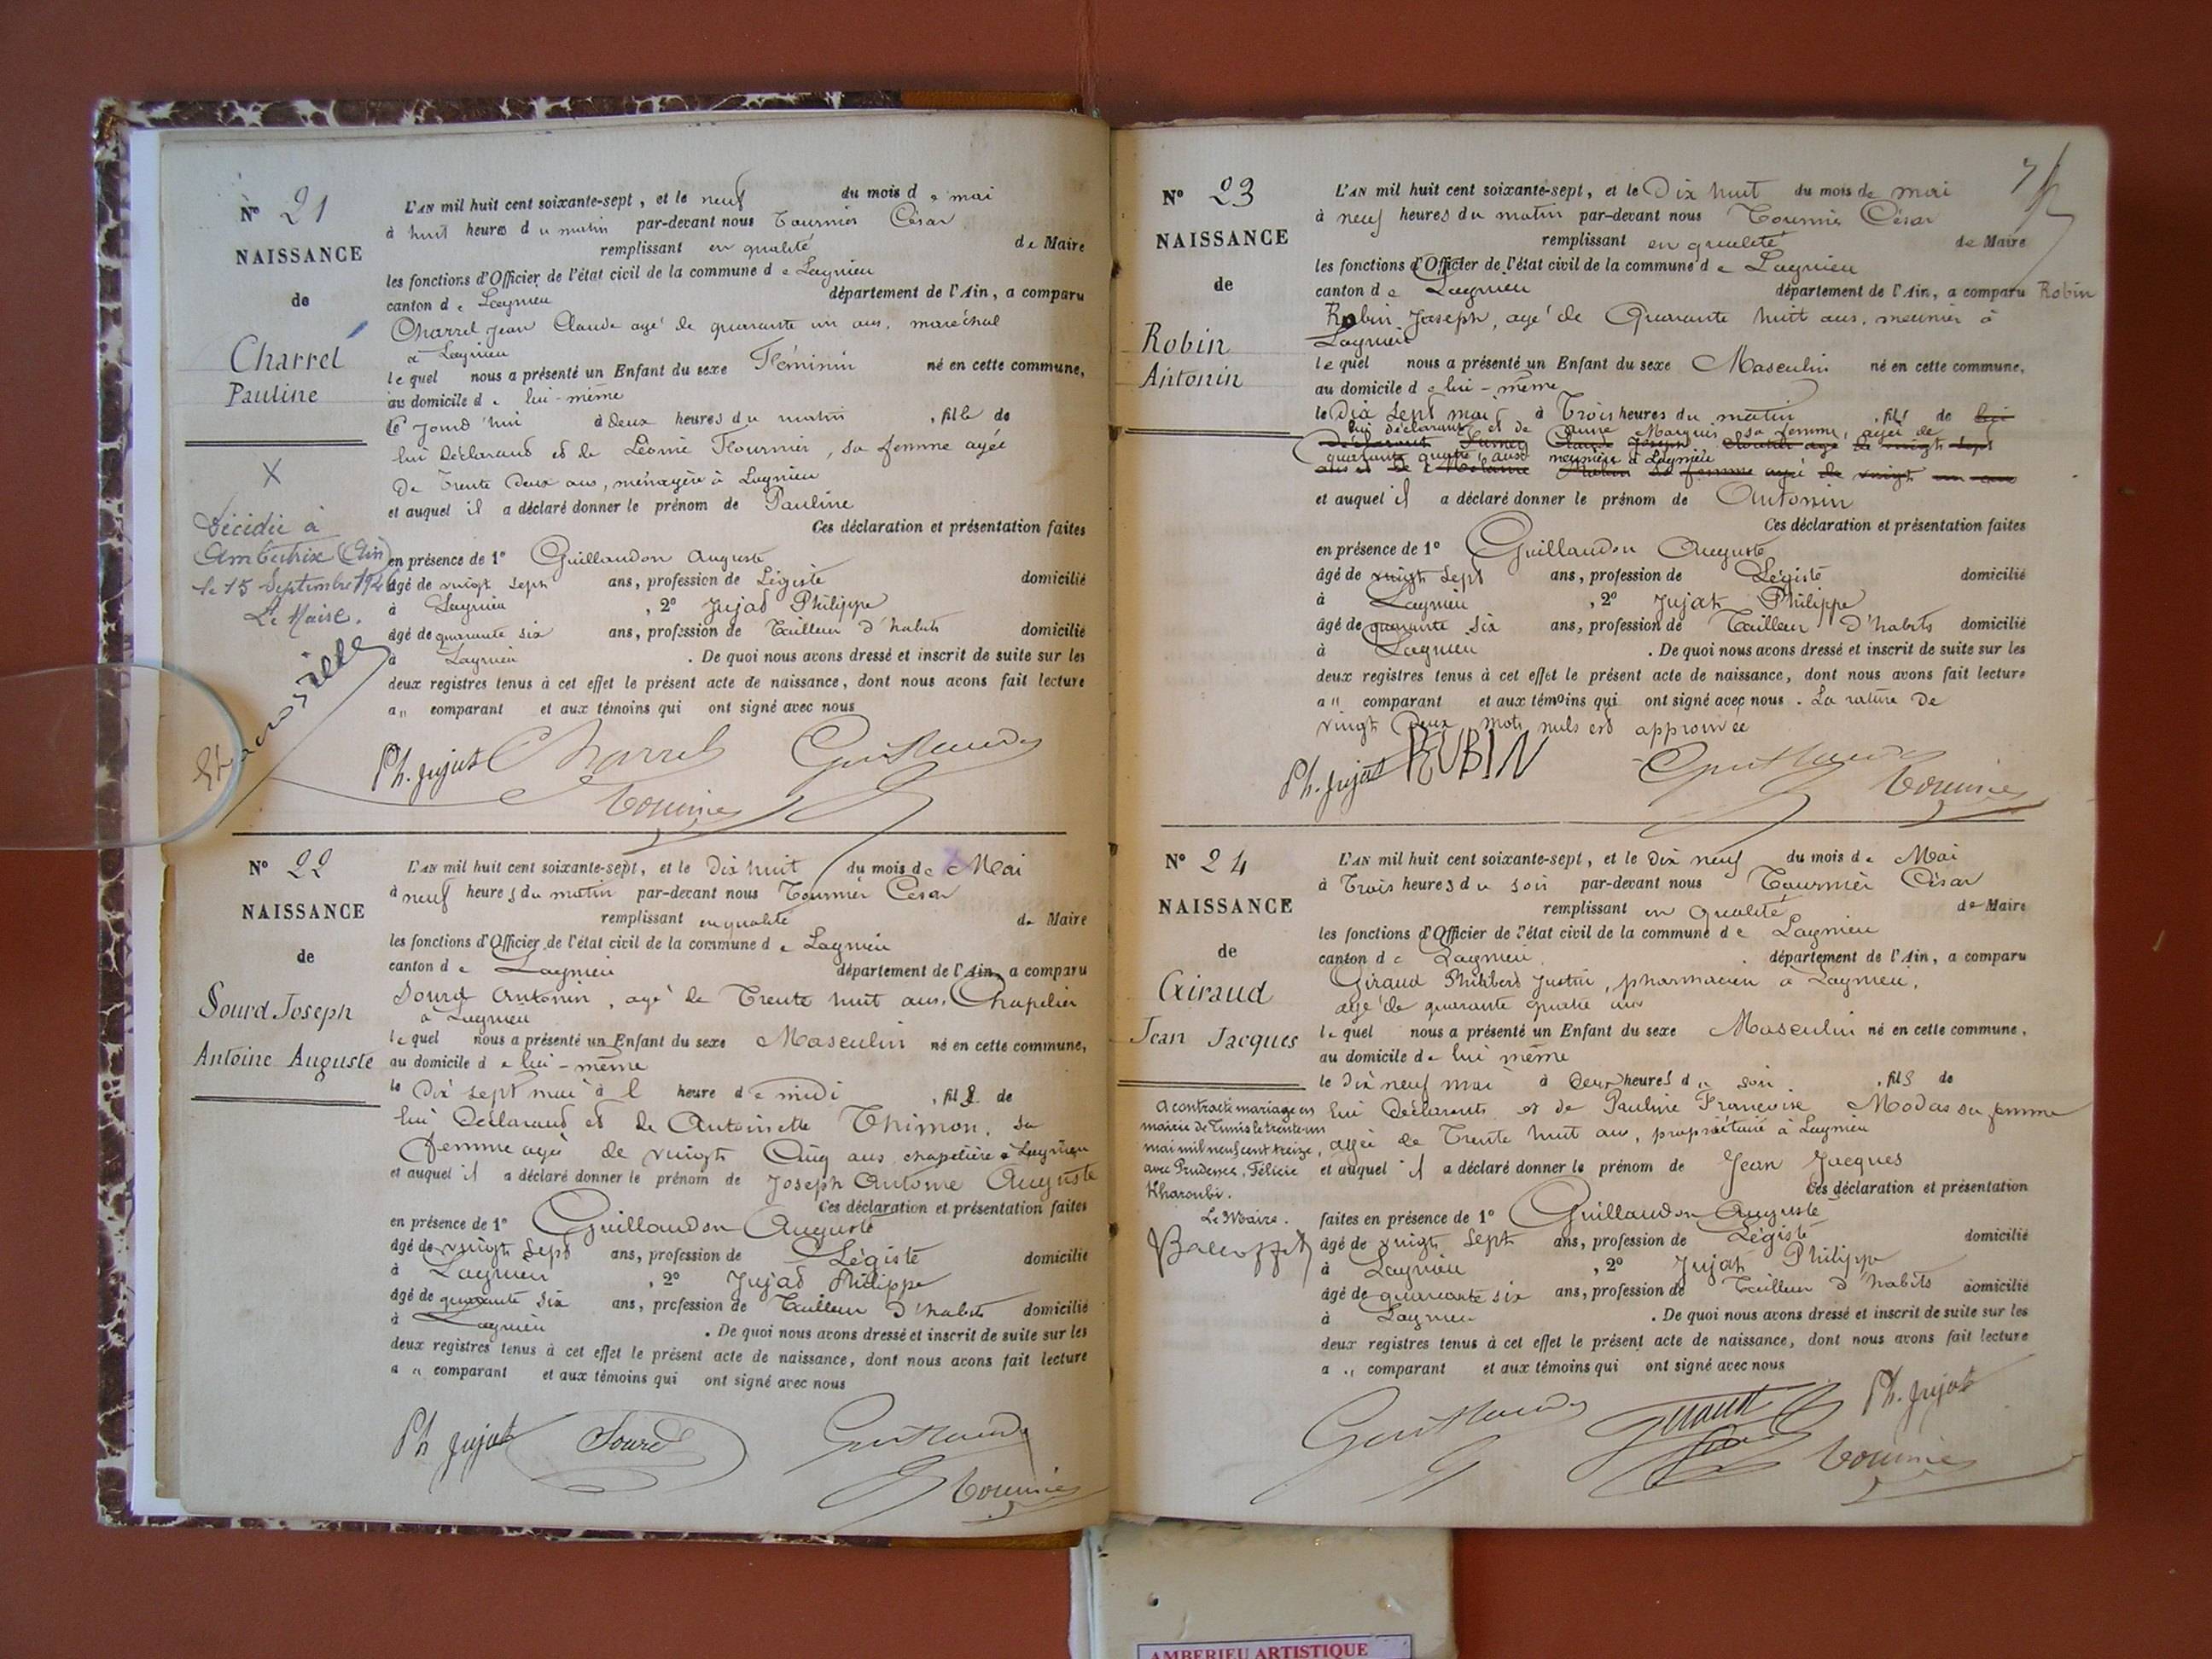 N° 21
NAISSANCE
de
Charrel
Pauline
X
Décédée à
Ambutrix (Ain)
le 15 Septembre
Le Maire.
L'AN mil huit cent soixante-sept, et le neuf du mois de mai
à huit heures du matin par-devant nous Tournier César
remplissant en qualité de Maire
les fonctions d'Officier de l'état civil de la commune de Lagnieu
canton de Lagnieu département de l'Ain, a comparu
Charrel Jean Claude agé de quarante un ans, maréchal
à Lagnieu
lequel nous a présenté un Enfant du sexe Féminin né en cette commune,
au domicile de lui-même
le jourd'hui à deux heures du matin, fille de
lui Déclarant et de Léonie Fournier, sa femme agée
de Trente Deux ans, ménagère à Lagnieu
et auquel il a déclaré donner le prénom de Pauline
Ces déclaration et présentation faites
en présence de 1° Guillaudon Auguste
âgé de vingt sept ans, profession de Légiste domicilié
à Lagnieu, 2° Jujat Philippe
âgé de quarante six ans, profession de Tailleur d'habits domicilié
à Lagnieu. De quoi nous avons dressé et inscrit de suite sur les
deux registres tenus à cet effet le présent acte de naissance, dont nous avons fait lecture
a" comparant et aux témoins qui ont signé avec nous
Ph. Jujat Charrel Guillaudon
Tournier
N° 22
NAISSANCE
de
Sourd Joseph
Antoine Auguste
L'AN mil huit cent soixante-sept, et le Dix huit du mois de Mai
à neuf heures du matin par-devant nous Tournier César
remplissant en qualité de Maire
les fonctions d'Officier de l'état civil de la commune de Lagnieu
canton de Lagnieu département de l'Ain, a comparu
Sourd Antonin, agé de Trente huit ans, Chapelier
à Lagnieu
lequel nous a présenté un Enfant du sexe Masculin né en cette commune,
au domicile de lui-même
le Dix sept mai à l heure de midi, fils de
lui Déclarant et de Antoinette Thimon, sa
femme agée de vingt Cinq ans chapelière à Lagnieu
et auquel il a déclaré donner le prénom de Joseph Antoine Auguste
Ces déclaration et présentation faites
en présence de 1° Guillaudon Auguste
âgé de vingt sept ans, profession de Légiste domicilié
à Lagnieu, 2° Jujat Philippe
âgé de quarante six ans, profession de Tailleur d'habits domicilié
à Lagnieu. De quoi nous avons dressé et inscrit de suite sur les
deux registres tenus à cet effet le présent acte de naissance, dont nous avons fait lecture
a " comparant et aux témoins qui ont signé avec nous
Ph Jujat Sourd Guillaudon
Tournier
N° 23
NAISSANCE
de
Robin
Antonin
L'AN mil huit cent soixante-sept, et le Dix huit du mois de mai
à neuf heures du matin par-devant nous Tournier César
remplissant en qualité de Maire
les fonctions d'Officier de l'état civil de la commune de Lagnieu
canton de Lagnieu département de l'Ain, a comparu Robin
Robin Joseph, agé de Quarante huit ans, meunier à
Lagnieu
lequel nous a présenté un Enfant du sexe Masculin né en cette commune,
au domicile de lui-même
le Dix sept mai à Trois heures du matin, fils de lui
lui déclarant et de Marguis sa femme, agée de
déclarant Claude Joseph agé de vingt sept
quarante quatre ans meunière à Lagnieu
ans et de Mélanie sa femme agée de vingt un ans
et auquel il a déclaré donner le prénom de Antonin
Ces déclaration et présentation faites
en présence de 1° Guillaudon Auguste
âgé de vingt sept ans, profession de Légiste domicilié
à Lagnieu, 2° Jujat Philippe
âgé de quarante six ans, profession de Tailleur d'habits domicilié
à Lagnieu. De quoi nous avons dressé et inscrit de suite sur les
deux registres tenus à cet effet le présent acte de naissance, dont nous avons fait lecture
a " comparant et aux témoins qui ont signé avec nous. La rature de
vingt Deux mots nuls est approuvée
Ph. Jujat RUBIN Guillaudon
Tournier
N° 24
NAISSANCE
de
Giraud
Jean Jacques
A contracté mariage en
mairie de Tunis le trente-un
mai mil neuf cent treize,
avec Prudence, Félicie
Kharoubi.
Le Maire.
L'AN mil huit cent soixante-sept, et le Dix neuf du mois de Mai
à Trois heures du soir par-devant nous Tournier César
remplissant en qualité de Maire
les fonctions d'Officier de l'état civil de la commune de Lagnieu
canton de Lagnieu. département de l'Ain, a comparu
Giraud Philibert Justin, pharmacien à Lagnieu,
agé de quarante quatre ans
lequel nous a présenté un Enfant du sexe Masculin né en cette commune,
au domicile de lui même
le Dix neuf mai à Deux heures du soir, fils de
lui Déclarant et de Pauline Françoise Modas sa femme
agée de Trente huit ans, propriétaire à Lagnieu
et auquel il a déclaré donner le prénom de Jean Jacques
Ces déclaration et présentation
faites en présence de 1° Guillaudon Auguste
âgé de vingt sept ans, profession de Légiste domicilié
à Lagnieu, 2° Jujat Philippe
âgé de quarante six ans, profession de Tailleur d'habits domicilié
à Lagnieu. De quoi nous avons dressé et inscrit de suite sur les
deux registres tenus à cet effet le présent acte de naissance, dont nous avons fait lecture
a " comparant et aux témoins qui ont signé avec nous
Guillaudon Giraud Ph. Jujat
Tournier
AMBERIEU ARTISTIQUE